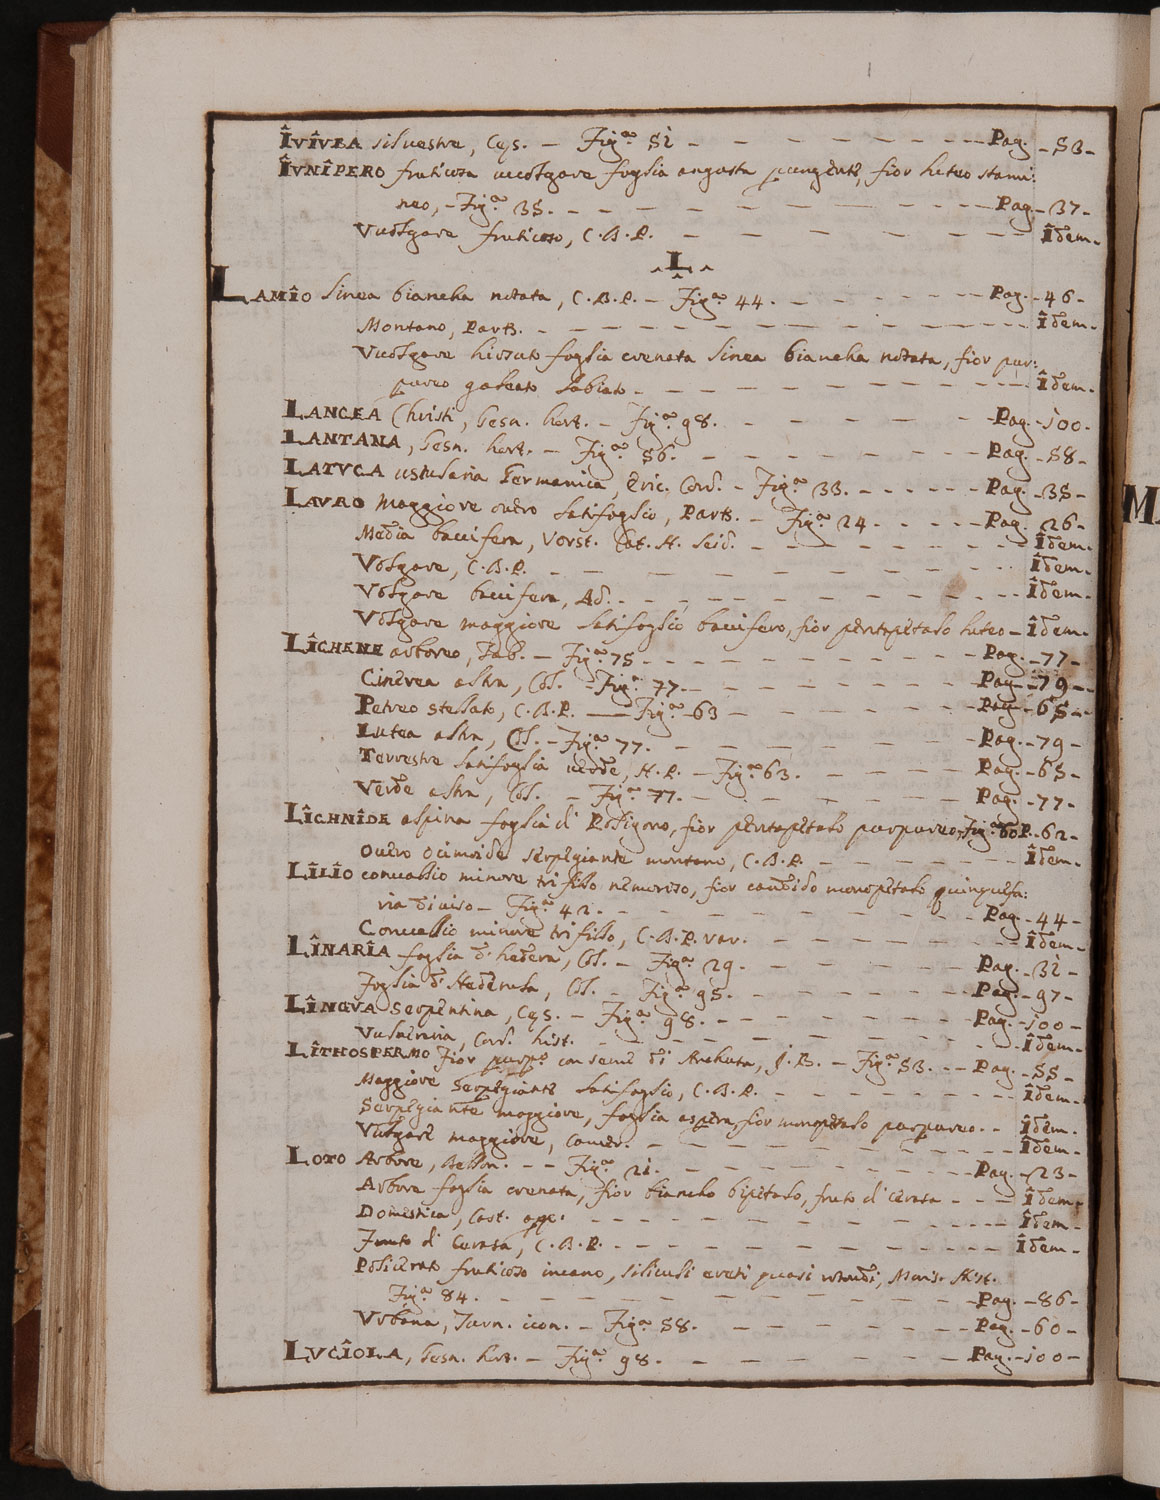 IVIVEA silvestre, Cęs. – Figᵃ. 51 – – – – – – – Pag. – 53 –
IVNIPERO fruticoso vuolgare foglia angusta pungente, fior luteo stami:
neo, – Figᵃ. 35. – – – – – – – – – Pag. – 37 –
Vuolgare fruticoso, C. B. P. – – – – – – – Idem –
L
LAMIO linea biancha notata, C. B. P. – Figᵃ. 44. – – – – – Pag. – 46 –
Montano, Park. – – – – – – – – – – – Idem –
Vuolgare hirsuto foglia crenata linea biancha notata, fior pur:
pureo galeato labiato – – – – – – – – – Idem –
LANCEA Christi, Gesn. hort. – Figᵃ. 98. – – – – – Pag. – 100 –
LANTANA, Gesn. hort. – Figᵃ. 56. – – – – – – Pag. – 58 –
LATVCA ustularia Germanica, Eric. Cord. – Figᵃ. 33. – – – – – Pag. – 35 –
LAVRO maggiore overo latifoglio, Park. – Figᵃ. 24 – – – – Pag. – 26 –
Media baccifera, Vorst. Cat. H. Leid. – – – – – – – Idem –
Volgare, C. B. P. – – – – – – – – – Idem –
Volgare baccifera, Ad. – – – – – – – – – Idem –
Volgare maggiore latifoglio baccifero, fior pentapetalo luteo – Idem –
LICHENE arboreo, Tab. – Figᵃ. 75 – – – – – – – – Pag. – 77 –
Cinerea altra, Col. – Figᵃ. 77 – – – – – – – Pag. – 79 –
Petreo stellato, C. B. P. – Figᵃ. 63 – – – – – – Pag. – 65 –
Lutea altra, Col. – Figᵃ. 77. – – – – – – – Pag. – 79 –
Terrestre latifoglia verde, H. P. – Figᵃ 63. – – – – Pag. – 65 –
Verde altra, Col. – Figᵃ. 77. – – – – – – Pag. – 77 –
LICHNIDE alpina foglia di Poligono, fior pentapetalo purpureo, Figᵃ. 60 P. – 62 –
Overo ocimoide serpegiante montano, C. B. P. – – – – – Idem –
LILIO convallio minore trifillo nemoroso, fior candido monopetalo quinquefa:
ria diviso – Figᵃ. 42. – – – – – – – – Pag. – 44 –
Convallio minore trifillo, C. B. P. var. – – – – – – Idem –
LINARIA foglia d' hedera, Col. – Figᵃ. 29. – – – – – Pag. – 31 –
Foglia d' Hederula, Col. – Figᵃ. 95. – – – – – Pag. – 97 –
LINGVA serpentina, Cęs. – Figᵃ. 98. – – – – – – Pag. – 100 –
Vulneraria, Cord. hist. – – – – – – – – – Idem –
LITHOSPERMO Fior purpº. con semi di Anchusa, J. B. – Figᵃ. 53. – – Pag. – 55 –
Maggiore Serpegiante latifoglio, C. B. P. – – – – – – – Idem –
Serpegiante maggiore, foglia aspera, fior monopetalo purpureo. – – Idem –
Vulgare maggiore, Camer. – – – – – – – – – Idem –
LOTO Arbore, Bellon. – – Figᵃ. 21. – – – – – – – Pag. – 23 –
Arbore foglia crenata, fior biancho bipetalo, fruto di cerasa – – – Idem –
Domestica, Cast. – – – – – – – – – – Idem –
Fruto di Cerasa, C. B. P. – – – – – – – – – Idem –
Policerato fruticoso incano, siliculi erecti quasi rotundi, Moris. Hist.
Figᵃ 84. – – – – – – – – – – – Pag. – 86 –
Urbana, Turn. icon. – Figᵃ. 58. – – – – – – Pag. – 60 –
LVCIOLA, Gesn. hort. – Figᵃ. 98. – – – – – – Pag. – 100 –